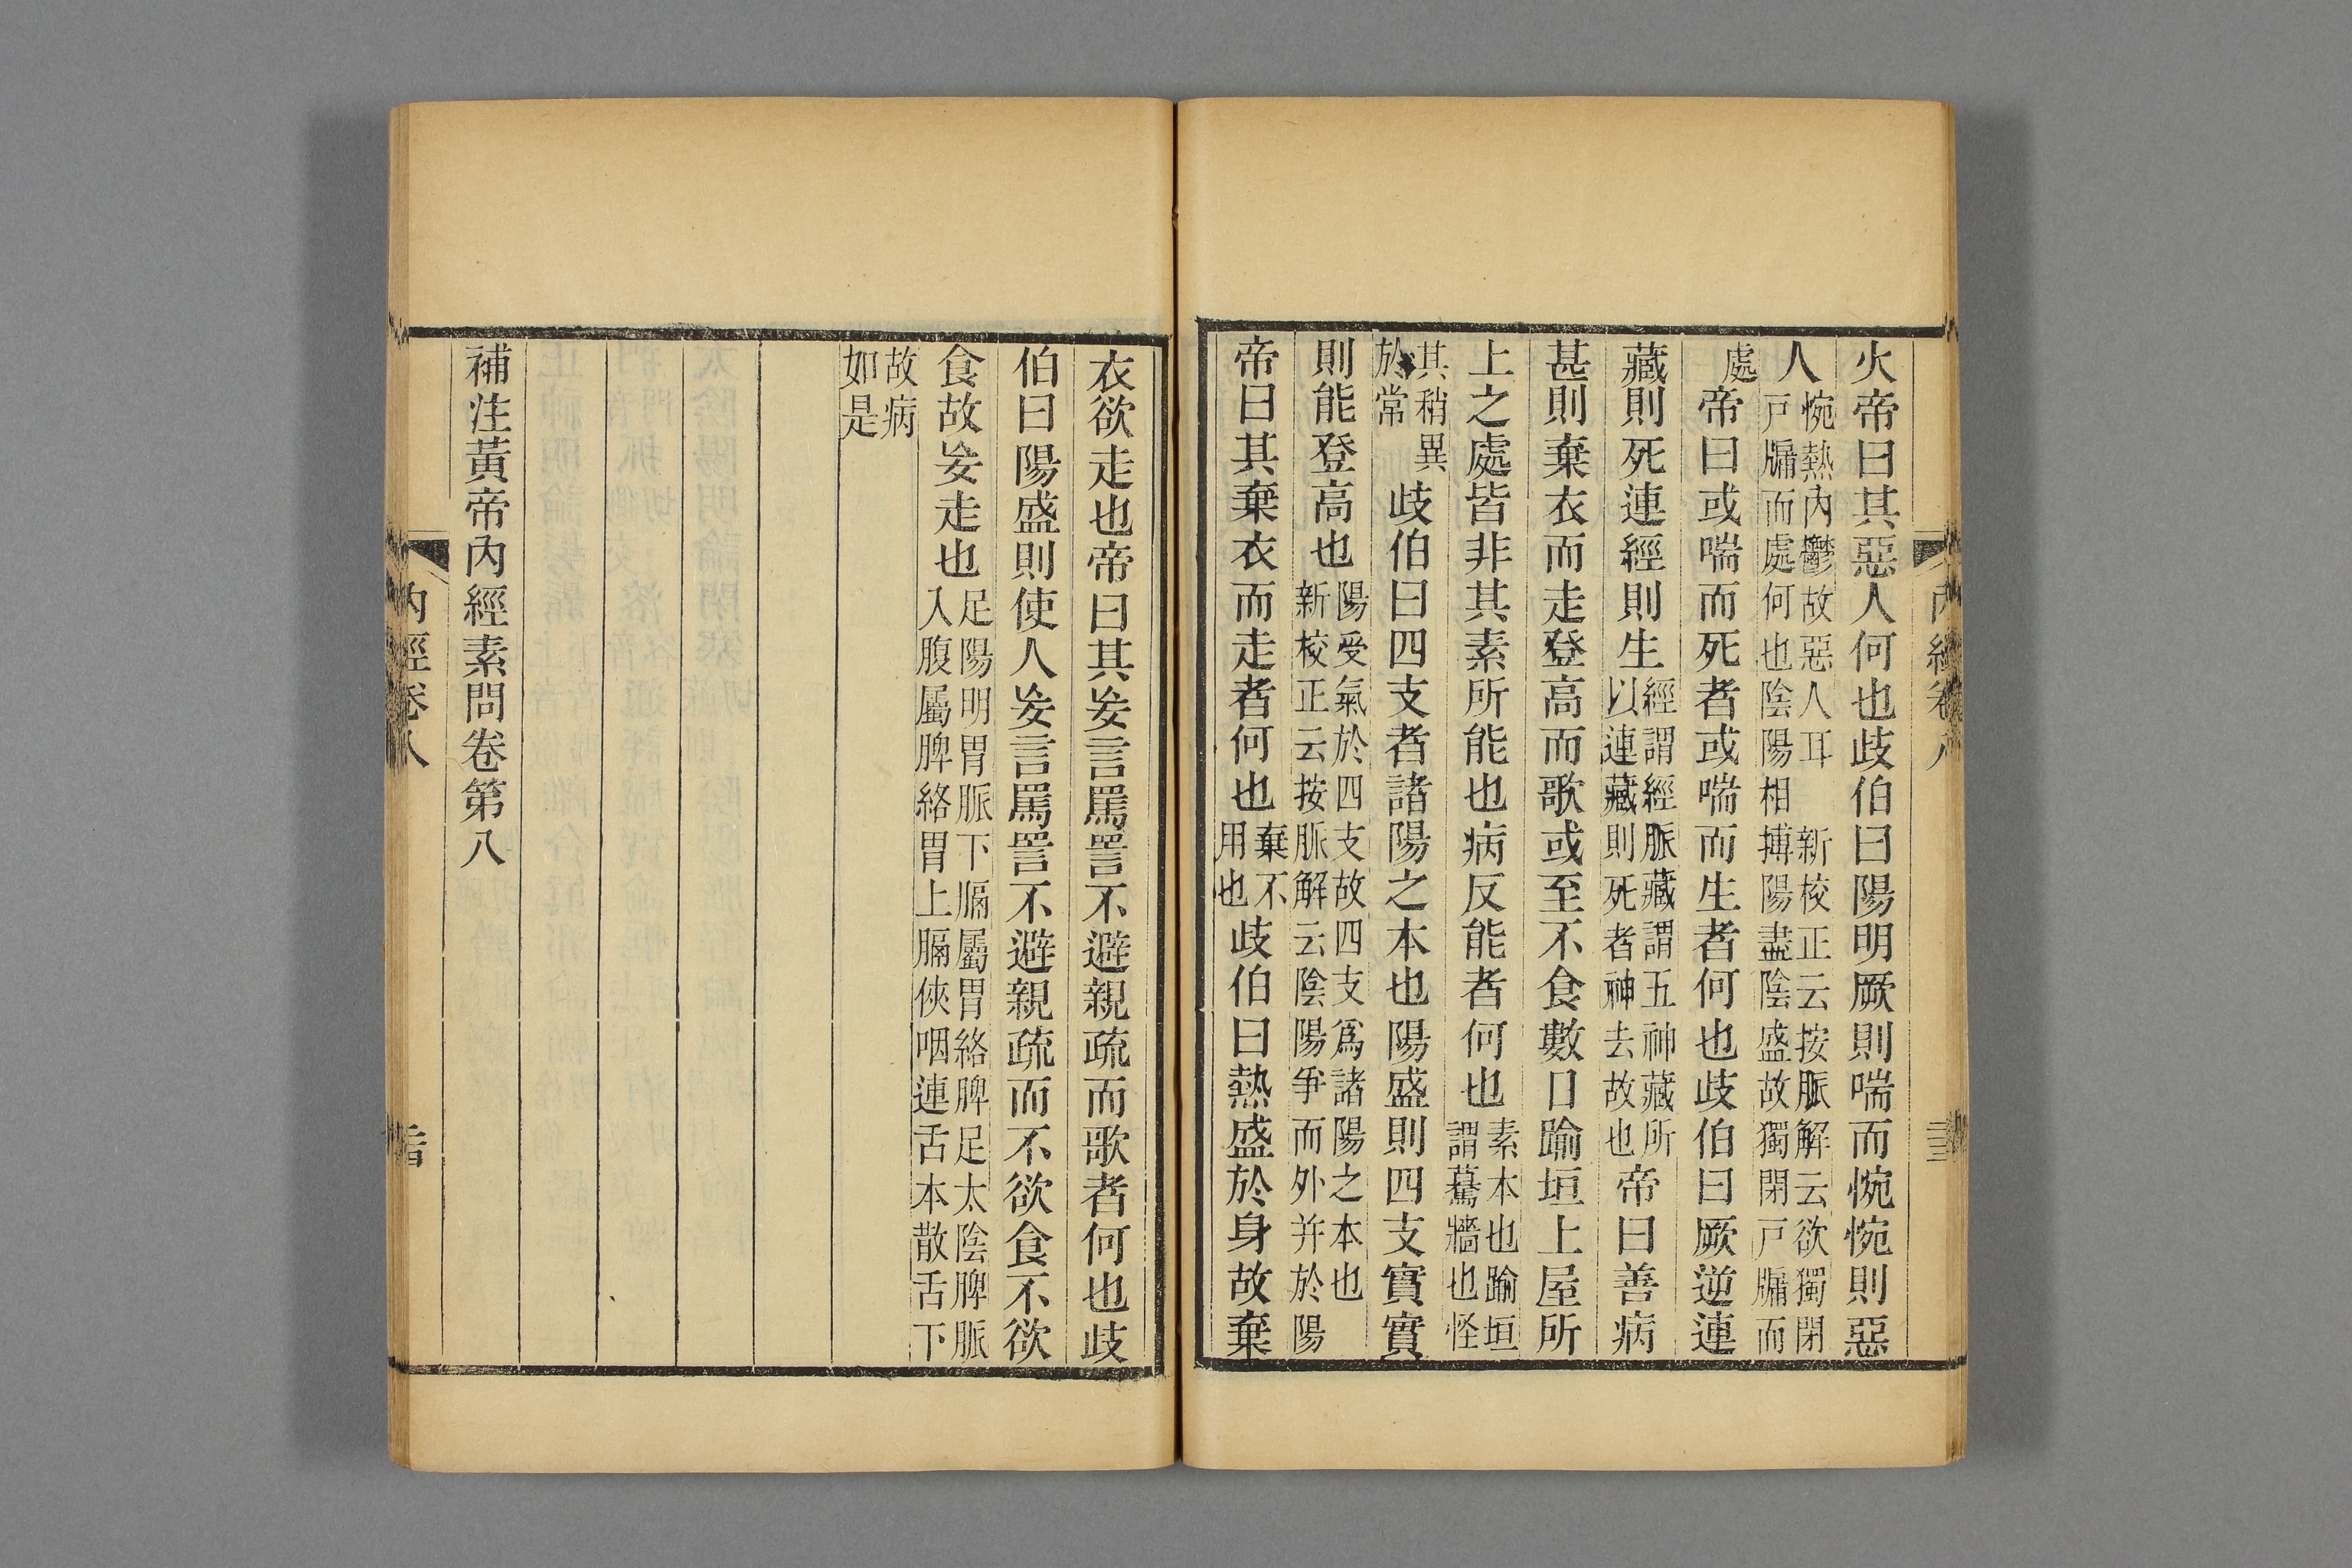 火帝曰其惡人何也歧伯曰陽明厥則喘而惋惋則惡
人惋熱內鬱故惡人耳　新校正云按脈解云欲獨閉戶牖而處何也陰陽相搏陽盡陰盛故獨閉戶牖而
處帝曰或喘而死者或喘而生者何也歧伯曰厥逆連
藏則死連經則生經謂經脈藏謂五神藏所以連藏則死者神去故也帝曰善病
甚則棄衣而走登高而歌或至不食數日踰垣上屋所
上之處皆非其素所能也病反能者何也素本也踰垣謂驀牆也怪
其稍異於常歧伯曰四支者諸陽之本也陽盛則四支實實
則能登高也陽受氣於四支故四支爲諸陽之本也新校正云按脈解云陰陽爭而外并於陽
帝曰其棄衣而走者何也棄不用也歧伯曰熱盛於身故棄
衣欲走也帝曰其妄言罵詈不避親疏而歌者何也歧
伯曰陽盛則使人妄言罵詈不避親疏而不欲食不欲
食故妄走也足陽明胃脈下膈屬胃絡脾足太陰脾脈入腹屬脾絡胃上膈俠咽連舌本散舌下
故病如是
補注黃帝內經素問卷第八
內經卷八